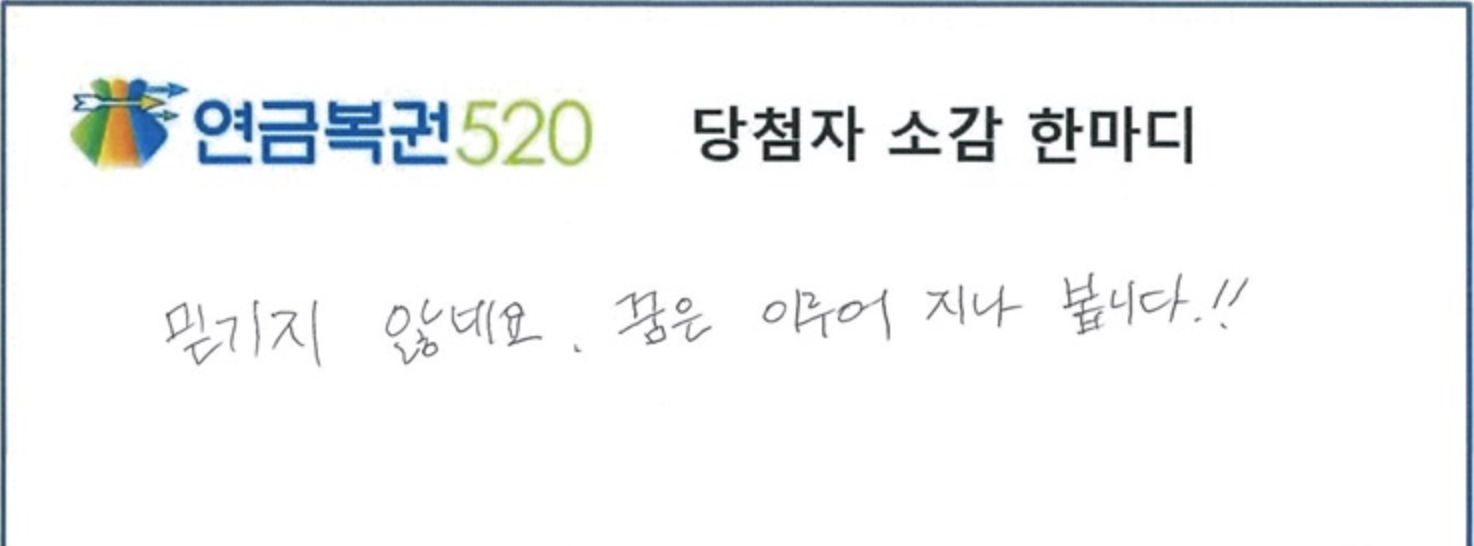 연금복권520 당첨자 소감 한마디
믿기지 않네요. 꿈은 이루어 지나 봅니다.!!